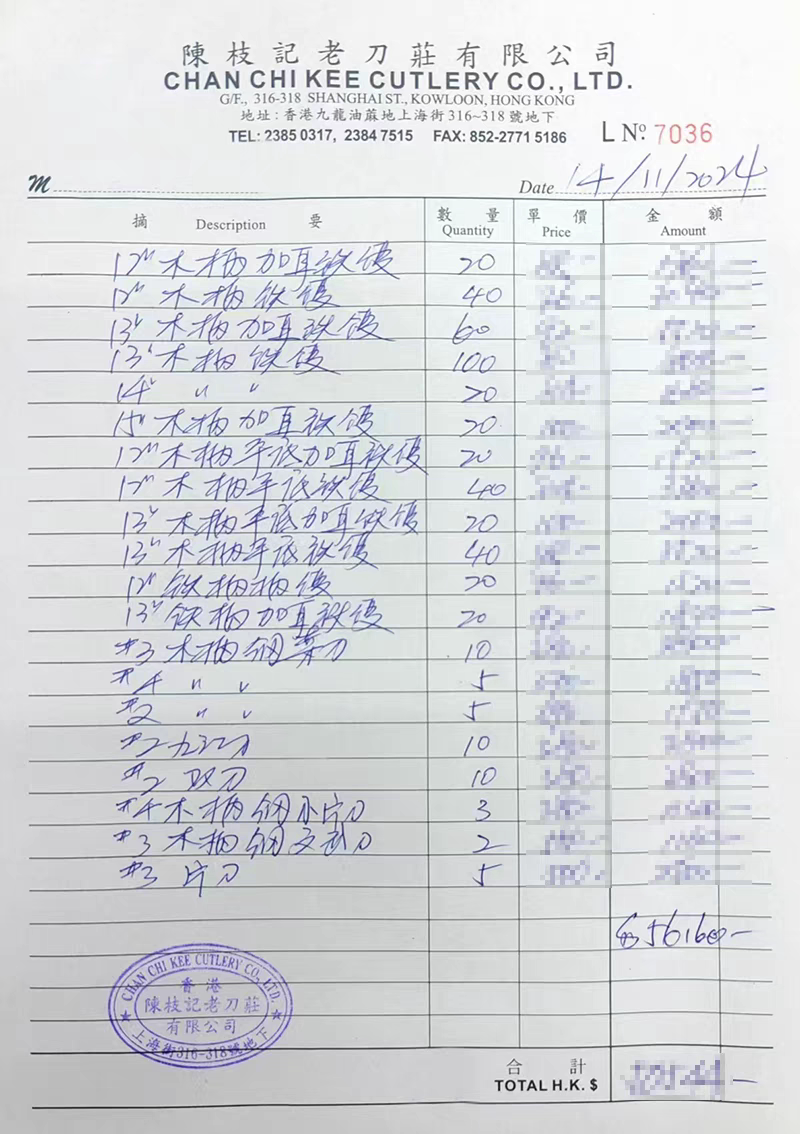 陳枝記老刀莊有限公司
CHAN CHI KEE CUTLERY CO., LTD.
G/F., 316-318 SHANGHAI ST., KOWLOON, HONG KONG
地址：香港九龍油蔴地上海街316~318號地下
TEL: 2385 0317, 2384 7515 FAX: 852-2771 5186 L Nº. 7036
M Date 14/11/2024
摘 Description 要 數量 Quantity 單價 Price 金額 Amount
12" 木柄加耳鉄 20
12" 木柄鉄 40
13" 木柄加耳鉄 60
13" 木柄鉄 100
14" 〃 〃 20
15" 木柄加耳鉄 20
12" 木柄平底加耳鉄 20
12" 木柄平底鉄 40
13" 木柄平底加耳鉄 20
13" 木柄平底鉄 40
12" 鉄柄 20
13" 鉄柄加耳鉄 20
#3 木柄鋼菜刀 10
#4 〃 〃 5
#2 〃 〃 5
#2 九江刀 10
#2 双刀 10
#4 木柄鋼小片刀 3
#3 木柄鋼文武刀 2
#3 片刀 5
56160-
CHAN CHI KEE CUTLERY CO., LTD.
香港
陳枝記老刀莊
有限公司
上海街316-318號地下
合計
TOTAL H.K. $